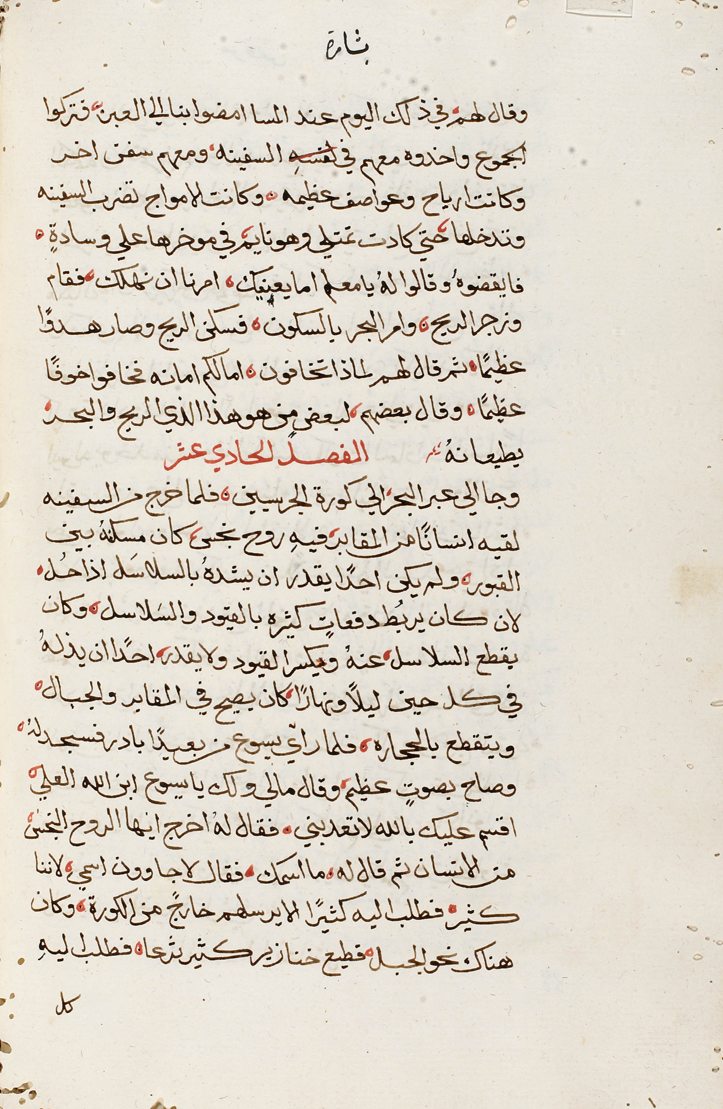 بشارة
وقال لهم في ذلك اليوم عند المسا امضوا بنا الي العبر فتركوا
الجموع واخدوه معهم في السفينه ومعهم سفن اخر
وكانت ارياح وعواصف عظيمه وكانت الامواج تضرب السفينه
وتدخلها حتي كادت تمتلي وهو نايم في موخرها علي وسادةٍ
فايقضوهُ وقالوا لهُ يا معلم اما يعنيك امرنا ان نهلك فقام
وزجر الريح وامر البحر بالسكون فسكن الريح وصار هدوًا
عظيمًا ثم قال لهم لماذا تخافون امالكم امانه فخافوا خوفًا
عظيمًا وقال بعضهم لبعض من هو هذا الذي الريح والبحر
يطيعانهُ الفصل الحادي عشر
وجا الي عبر البحر الي كورة الجرسيين فلما خرج من السفينه
لقيه انسانًا من المقابر فيهِ روح نجس كان مسكنهُ بين
القبور ولم يكن احدًا يقدر ان يشدهُ بالسلاسل
لان كان يربُط دفعاتٍ كثيره بالقيود والسَلاسل وكان
يقطع السلاسل عنهُ ويكسر القيود ولا يقدر احدًا ان يذلهُ
في كل حين ليلًا ونهارًا كان يصيح في المقابر والجبال
ويتقطع بالحجاره فلما راي يسوع من بعيدًا بادر فسجد لهُ
وصاح بصوتٍ عظيم وقال مالي ولك يا يسوع ابن الله العلي
اقسم عليك بالله لا تعذبني فقال لهُ اخرج ايها الروح النجس
من الانسان ثم قال له ما اسمك فقال لاجاوون اسمي لاننا
كثير فطلب اليه كثيرًا الا يرسلهم خارجً من الكورة وكان
هناك نحو الجبل قطيع خنازير كثير ترعا فطلب اليهِ
كل